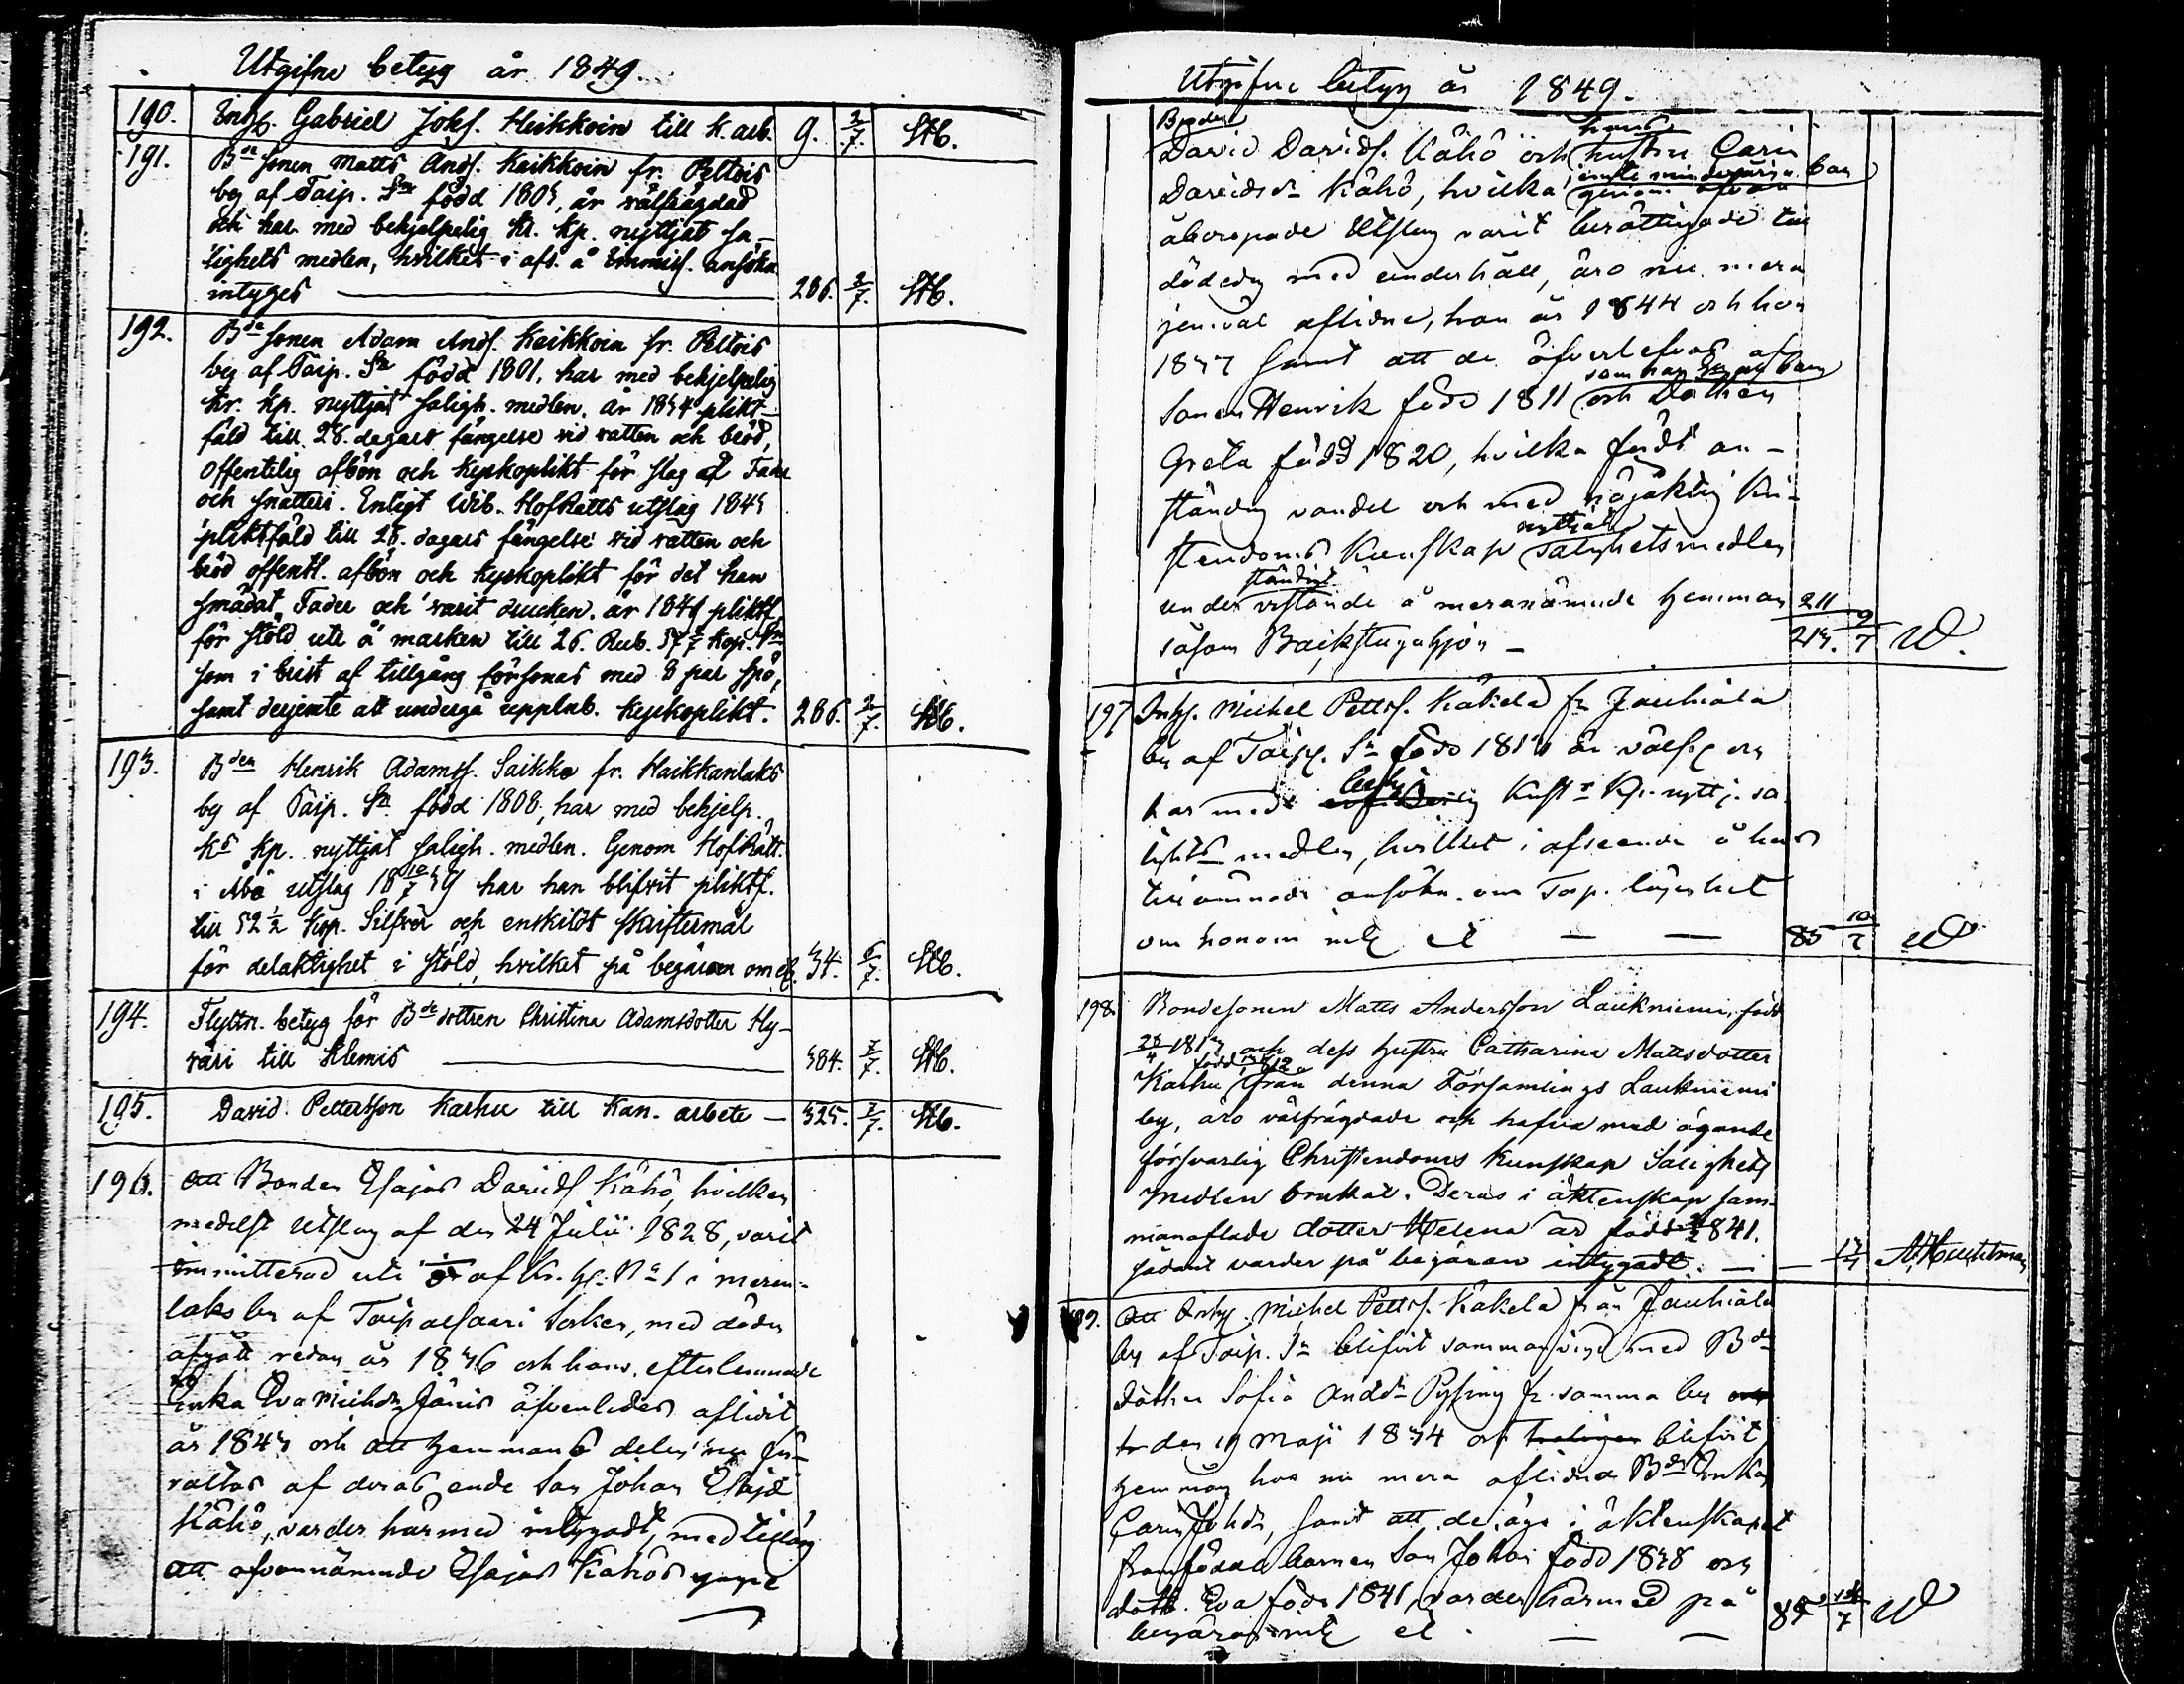 Utgifne betyg år 1849.
190. Inhs. Gabriel Johs. Heikkoin till K. arb. 9. 2/7. HC.
191. Bde sonen Matts Ands. Kaikkoin fr. Peltois
by af Taip. Sn född 1805, är välfrägdad
och har med behjelpelig Kr. Kp. nyttjat sa-
lighets medlen, hvilket i afs. å Emmiss. ansökn
intyges — 286. 2/7. HC.
192. Bde sonen Adam Ands. Kaikkoin fr. Peltois
by af Taip. Sn född 1801. har med behjelpelig
kr. kp. nyttjat saligh. medlen. år 1834 plikt-
fäld till 28. dagars fängelse vid vatten och bröd,
offentelig afbön och kyrkoplikt för slag å Fader
och snatteri. Enligt Wib. HofRätts utslag 1845
pliktfäld till 28. dagars fängelse vid vatten och
bröd offentl. afbön och kyrkoplikt för det han
smädat Fader och varit drucken. år 1849 pliktf.
för stöld ute å marken till 26. Rub. 57 1/7 Kop. Sm
som i brist af tillgång försonas med 8 par spö,
samt derjemte att undergå uppenb. kyrkoplikt. 286. 2/7. HC.
193. Bden Henrik Adamss. Saikko fr. Haikkanlaks
by af Taip. Sn född 1808, har med behjelp.
Ks kp. nyttjat saligh. medlen. Genom HofRätt.
i Åbo utslag 18 10/7 39 har han blifvit pliktf.
till 52 1/2 kop. Silfver och enskildt skriftermål
för delaktighet i stöld, hvilket på begäran 34. 6/7. HC.
194. Flyttn. betyg för Bde dottren Christina Adamsdotter Hy-
väri till Klemis — 384. 7/7. HC.
195. David Pettersson Karhu till Kan. arbete — 325. 7/7. HC.
196. Att Bonden Esajas Davids. Kähö, hvilken
medelst Utslag af den 24 Julii 1828, varit
immitterad uti af Kr. hs. No 1 i
laks by af Taipalsaari Socken, med döden
afgått redan år 1836 och hans efterlemnade
Enka Eva Michdr Jänis äfvenledes aflidit
år 1843 och att hemmans delen nu för-
valtas af deras enda Son Johan Esajs.
Kähö, varder härmed intygadt, med tillägg
att ofvannämnde Esajas Kähös
Utgifne betyg år 1849.
Broder
David Davids. Kähö och hans hustru Carin
Davidsdr Kähö, hvilka jemte minderåriga barn genom ofvan
åberopade Utslag varit berättigade till
dödedag med underhåll, äro nu mera
jemväl aflidne, han år 1844 och hon
1837 samt att de öfverlefvas af
Sonen Henrik född 1811 som har och Dottren
Greta född 1820, hvilka fördt an-
ständig vandel och med nöjaktig Kri-
stendoms Kunskap nyttjat Salighetsmedlen
under ständigt vistande å meranämnde hemman 211
såsom Backstuguhjon — 213. 9/7 W.
197 Inhs. Michel Petts. Käkelä fr Jauhiala
by af Taip. Sn född 181 är välfr. och
har med behj. Kristr Kp. nyttj. sa
lighets medlen, hvilket i afseende å hans
tillämnade ansökn. om Torp. lägenhet
om honom — — 85 10/7 W
198. Bondesonen Matts Andersson Laukniemi, född
28/4 181 och dess hustru Catharina Mattsdotter
Karhu född 1812 från denna Församlings Laukniemi
by, äro välfrägdade och hafva med ägande
försvarlig Christendoms Kunskap Salighets
medlen brukat. Deras i äktenskap sam-
manaflade dotter Helena är född 1841.
sådant varder på begäran intygadt. — — A. Hueltman
199. Att Inhs. Michel Petts. Käkelä från Jauhiala
by af Taip. Sn blifvit sammanvigd med Bde
dottren Sofia Andsdr Pysing fr. samma by
den 19 Maji 1834 och blifvit
hemmåg hos nu mera aflidna Bde Enkan
Carin Johdr, samt att de äga i äktenskapet
framfödda barnen Son Johan född 1838 och
dottr. Eva född 1841, varder härmed på
begäran — — 85 /7 W